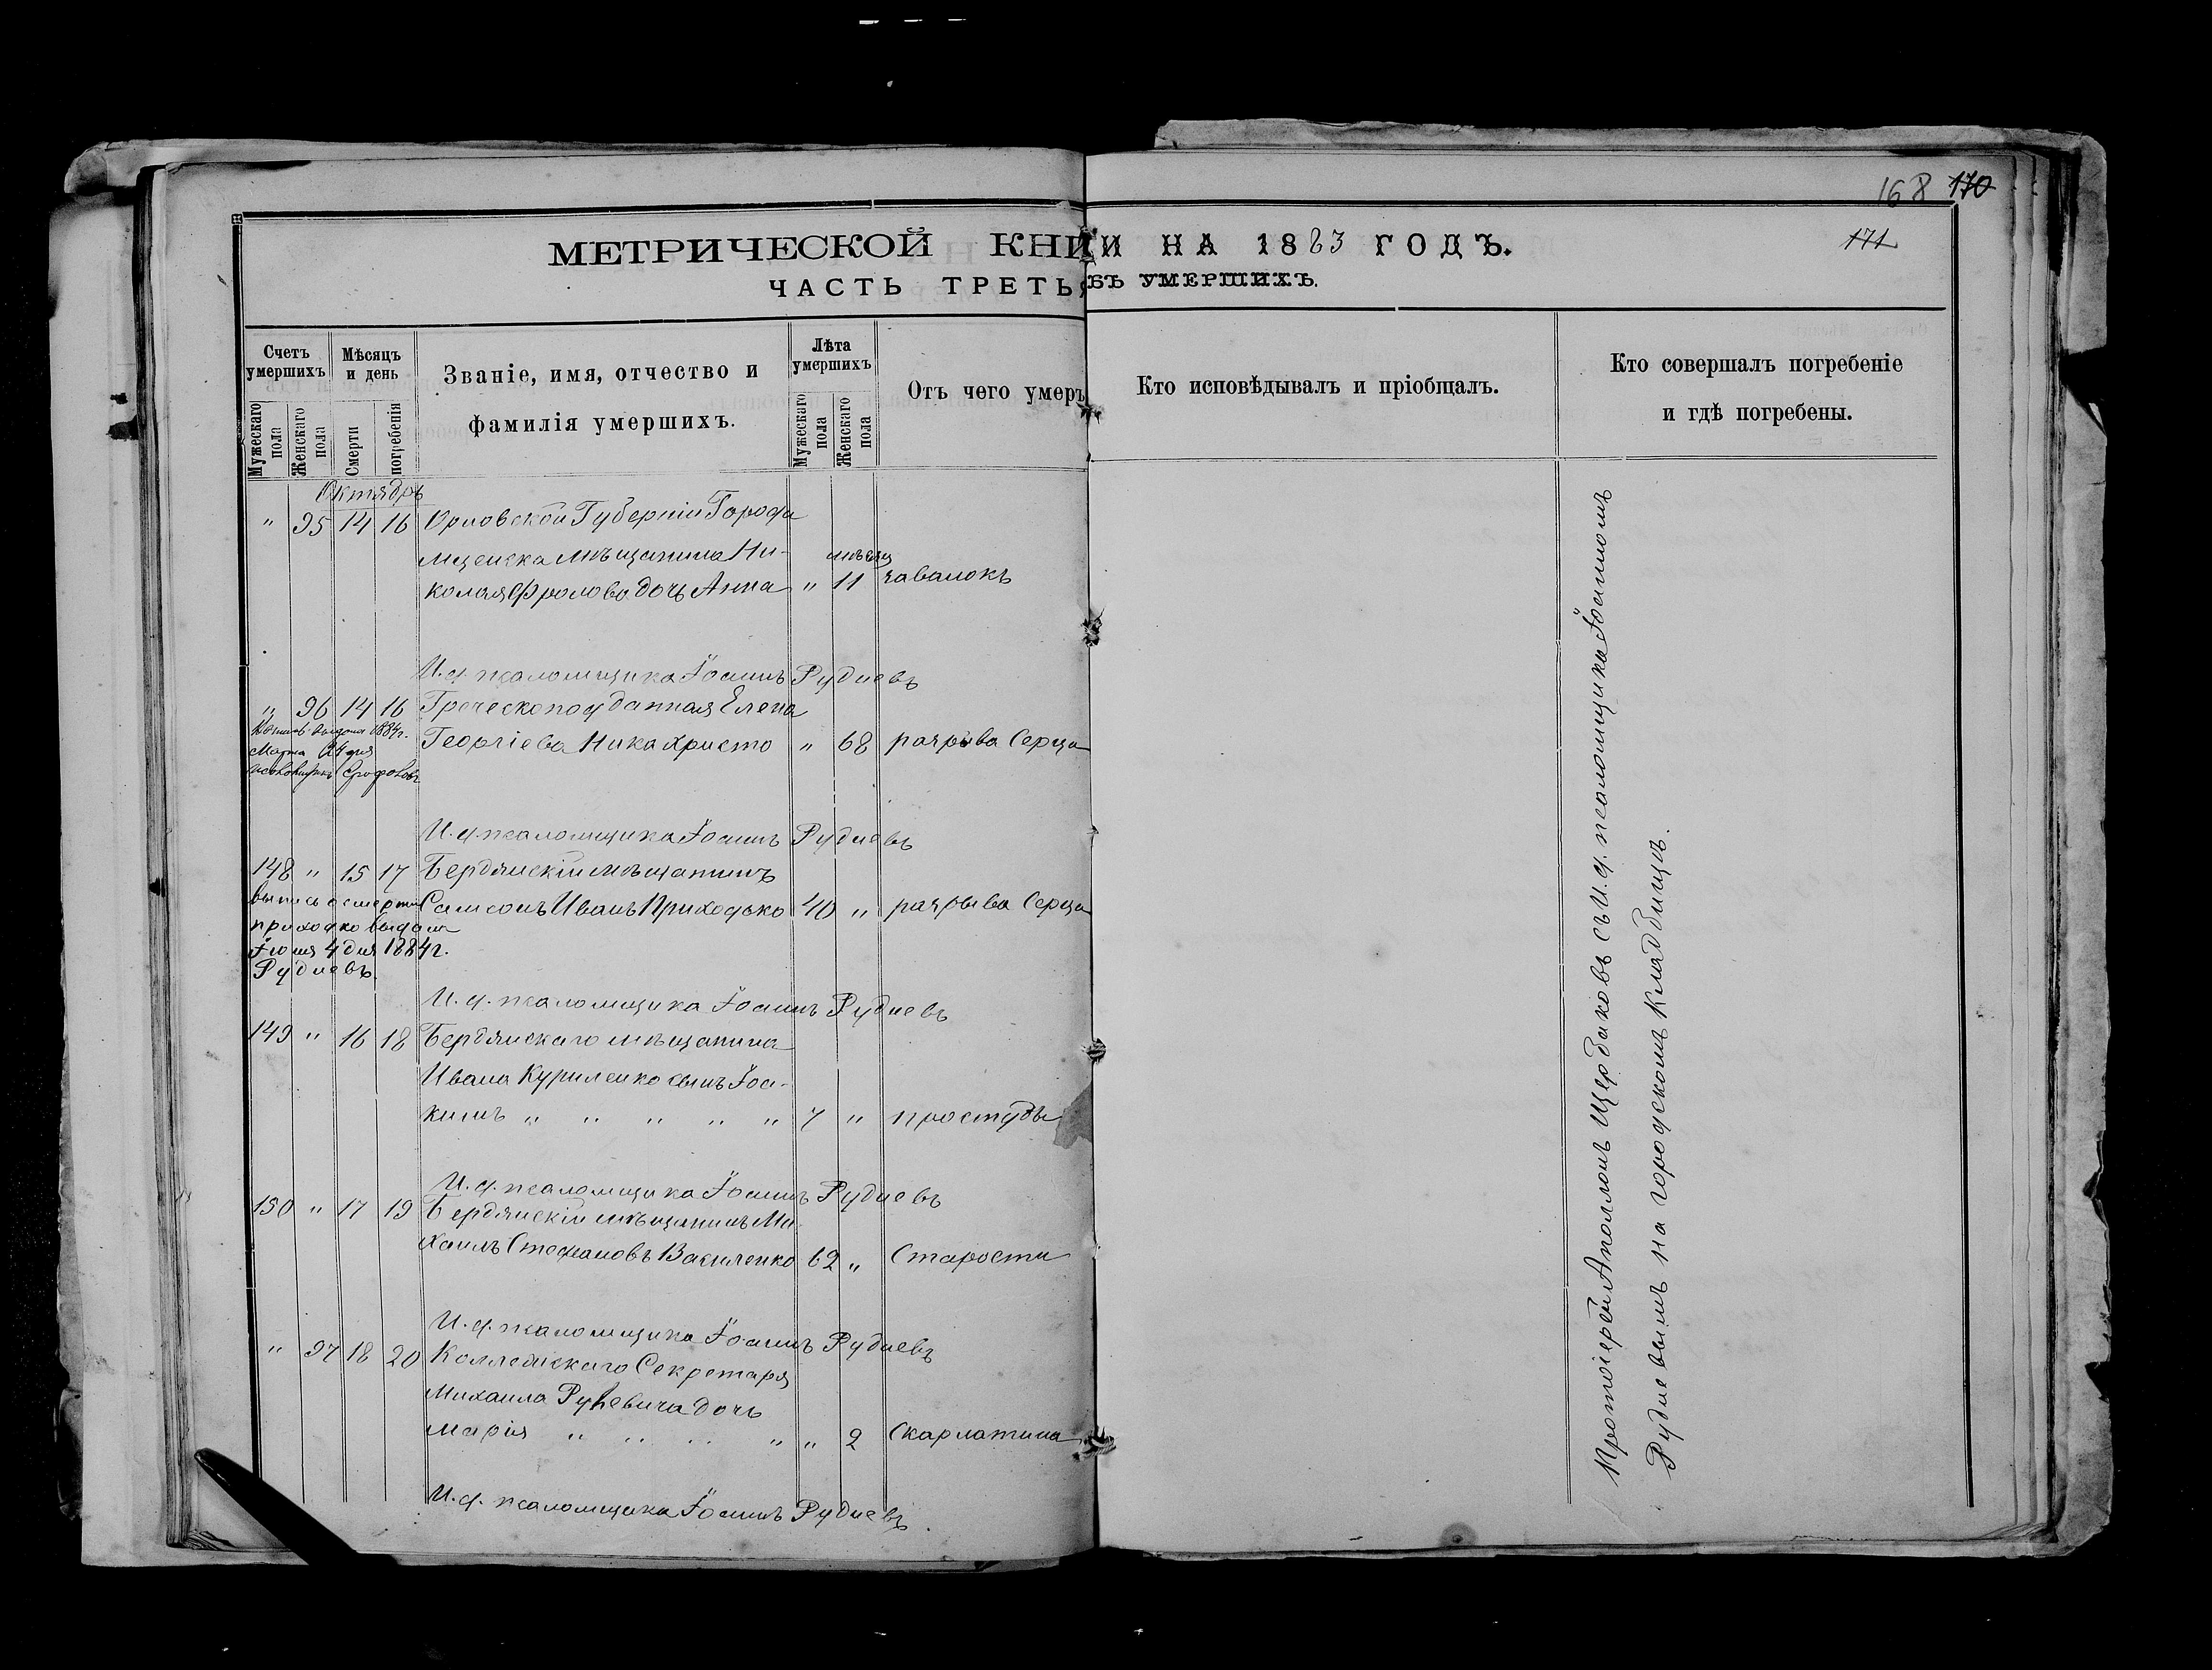 168 170
171
МЕТРИЧЕСКОЙ КНИГИ НА 1883 ГОДЪ.
ЧАСТЬ ТРЕТЬЯ
УМЕРШИХЪ.
Счетъ умершихъ
Мужескаго пола
Женскаго пола
Мѣсяцъ и день
Смерти
погребенія
Званіе, имя, отчество и
фамилія умершихъ.
Лѣта умершихъ
Мужескаго пола
Женскаго пола
Отъ чего умеръ
Кто исповѣдывалъ и пріобщалъ.
Кто совершалъ погребеніе
и гдѣ погребены.
Октябрь
" 95 14 16 Орловской Губерніи Города
Мценска мѣщанина Ни-
колая Фролова дочь Анна " мѣсяц 11
И. д. псаломщика Іоаннъ Рудневъ
" 96 14 16 Греческоподданная Елена
Георгіева Никахристо " 68 разрыва Серца
1884 г.
Марта
И. д. псаломщика Іоаннъ Рудневъ
148 " 15 17 Бердянскій мѣщанинъ
Самсонъ Иванъ Приходько 40 " разрыва Серца
выпись о смерти
приходко выдана
Іюня 4 дня 1884 г.
Рудневъ.
И. д. псаломщика Іоаннъ Рудневъ
149 " 16 18 Бердянскаго мѣщанина
Ивана Куриленко сынъ Іоа-
кимъ " " " " " 7 " простуды
И. д. псаломщика Іоаннъ Рудневъ
150 " 17 19 Бердянскій мѣщанинъ Ми-
хаилъ Стефановъ Василенко 62 " Старости
И. д. псаломщика Іоаннъ Рудневъ
" 97 18 20 Коллежскаго Секретаря
Михаила дочь
Марія " " " " " 2 Скарлатина
И. д. псаломщика Іоаннъ Рудневъ
Протоіерей Аполлонъ Щербаковъ съ И. д. псаломщика Іоанномъ
Рудневымъ на городскомъ кладбищѣ.